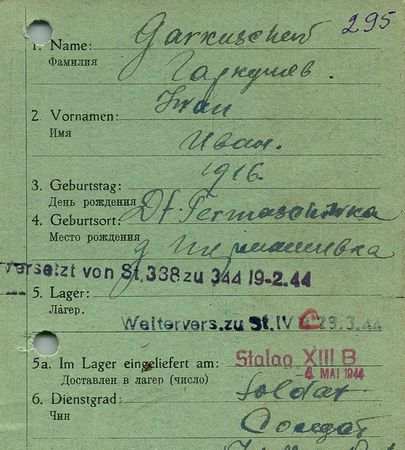 295
1. Name: Garkuschew
Фамилия Гаркушев.
Iwan
2. Vornamen:
Имя Иван.
1916.
3. Geburtstag:
День рождения
4. Geburtsort: Df.
Место рождения д
versetzt von St. 338 zu 344 19-2.44
5. Lager:
Лагерь.
Weitervers. zu St. IV 29.3.44
Stalag XIII B
5a. Im Lager eingeliefert am: -4. MAI 1944
Доставлен в лагер (число)
6. Dienstgrad: Soldat
Чин Солдат